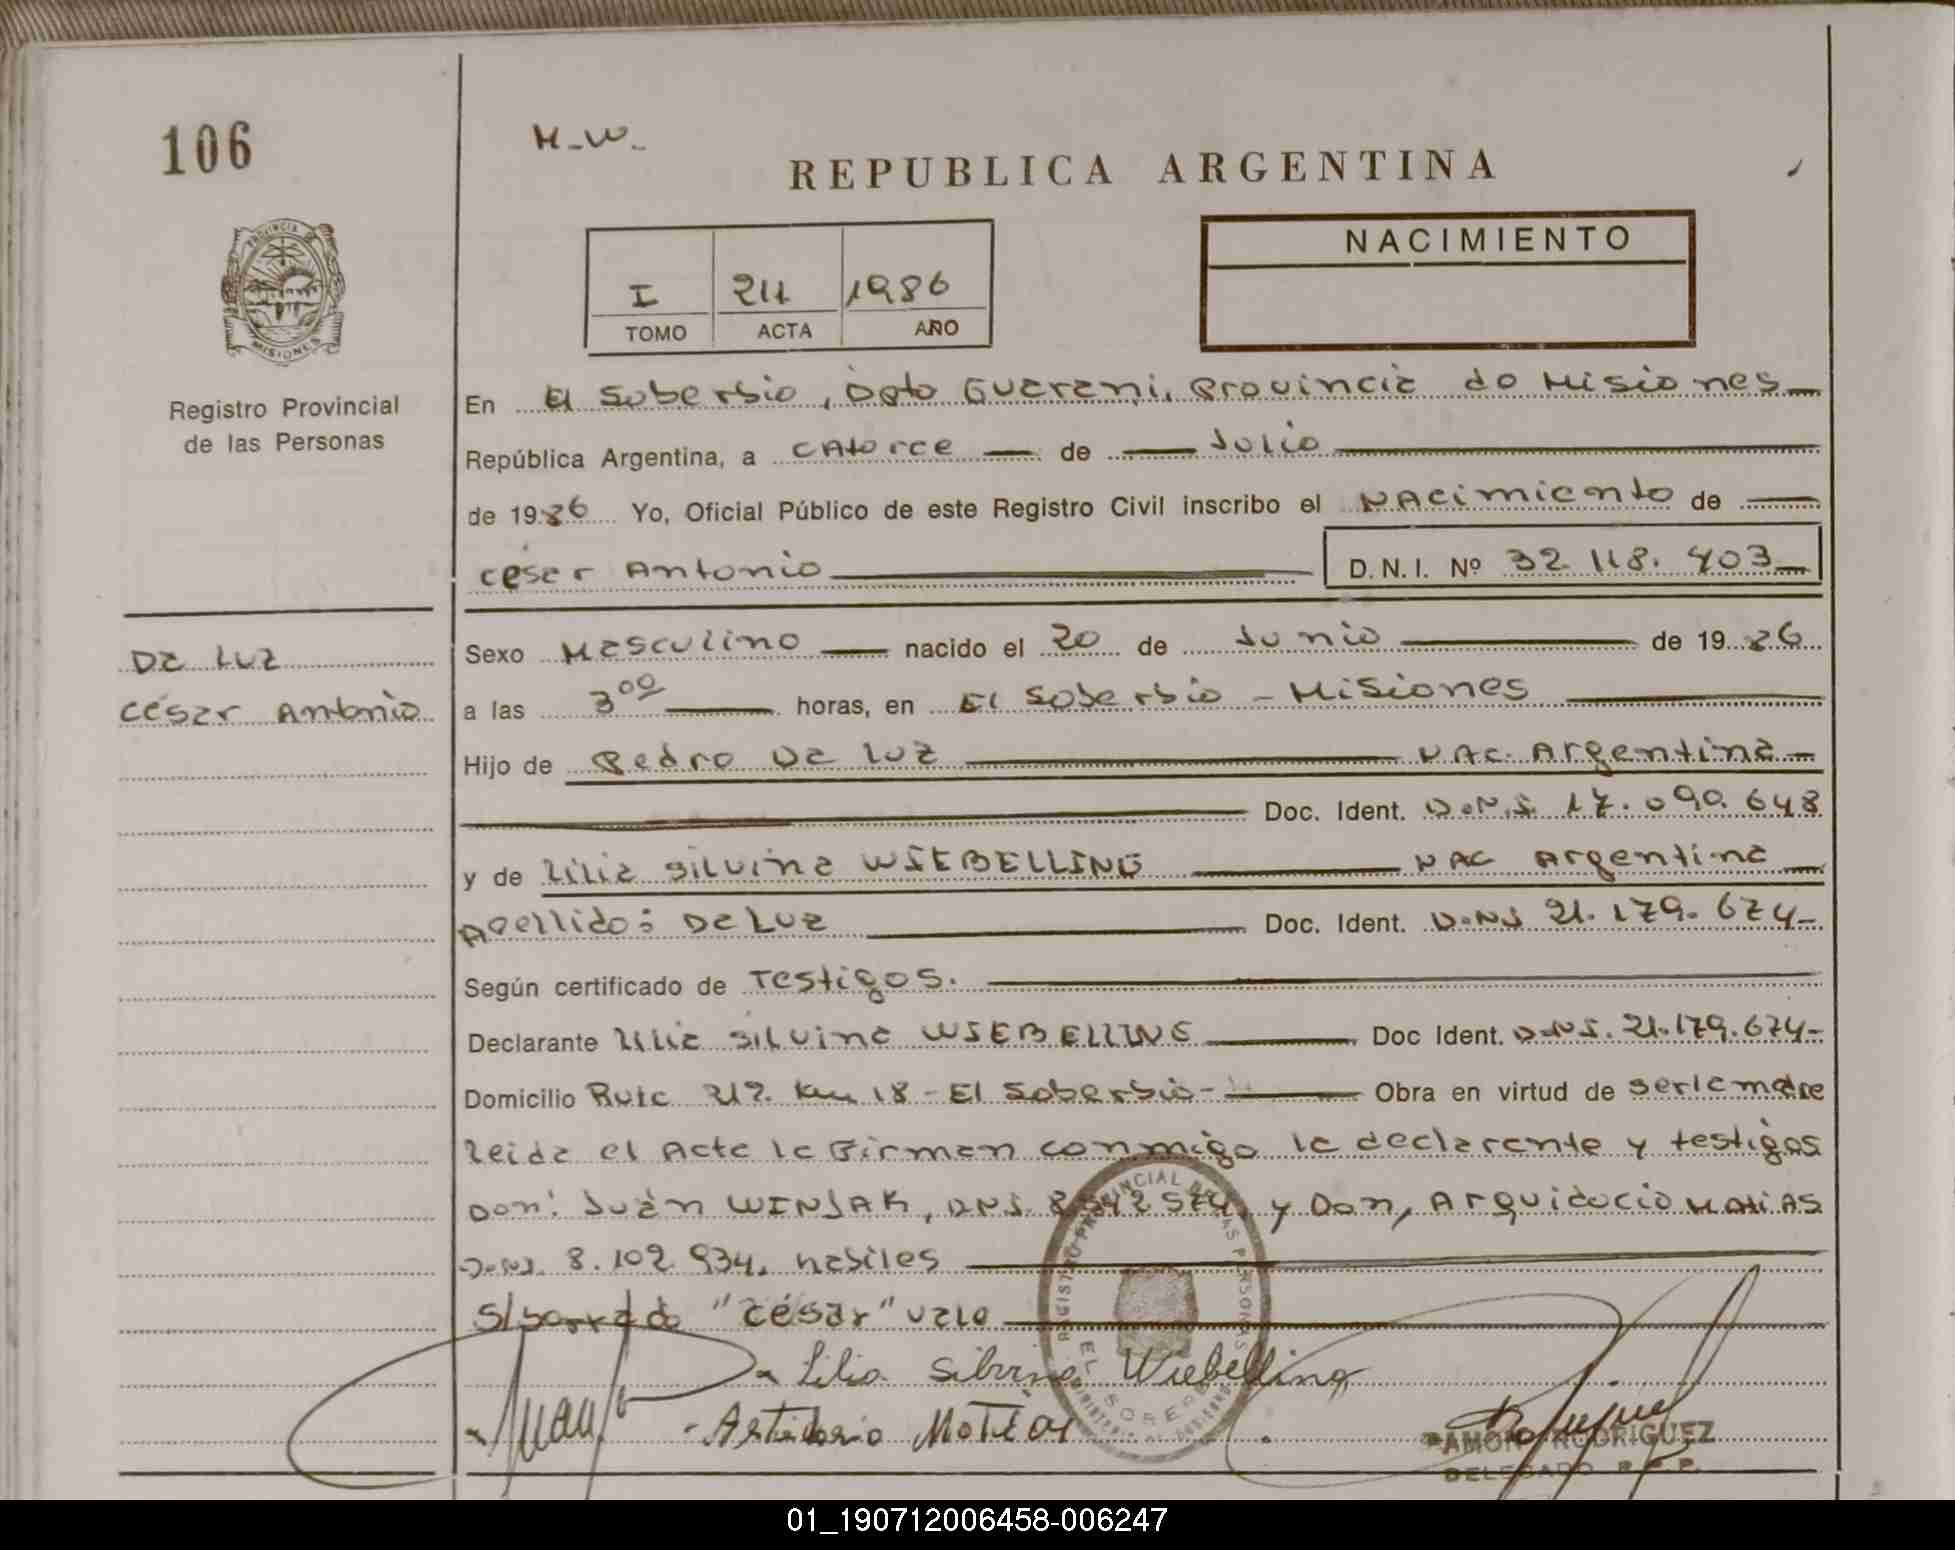 106
H-W-
REPUBLICA ARGENTINA
PROVINCIA DE
MISIONES
Registro Provincial
de las Personas
I 211 1986
TOMO ACTA AÑO
NACIMIENTO
En El Soberbio, Dpto Guarani, Provincia de Misiones
República Argentina, a Catorce de Julio
de 1986 Yo, Oficial Público de este Registro Civil inscribo el Nacimiento de
César Antonio D.N.I. Nº 32.118.403
Da Luz
César Antonio
Sexo Masculino nacido el 20 de Junio de 1986
a las 3⁰⁰ horas, en El Soberbio - Misiones
Hijo de Pedro Da Luz Nac. Argentina
Doc. Ident. D.N.I. 17.090.648
y de Lilia Silvina WIEBELLING Nac Argentina
Apellido: Da Luz Doc. Ident. D.N.I 21.179.674-
Según certificado de Testigos.
Declarante Lilia Silvina WIEBELLING Doc Ident. D.N.I. 21.179.674-
Domicilio Ruta 212 Km 18 - El Soberbio - Obra en virtud de ser la madre
Leida el Acta la Firman conmigo la declarante y testigos
Don: Juan WINJAK, DNI. y Don, Matias
D.N.I. 8.102.934, habiles
S/borrado "César" vale
Lilia Silvina Wiebelling
Juan
Matias
REGISTRO PROVINCIAL DE LAS PERSONAS
EL SOBERBIO
RAMON RODRIGUEZ
DELEGADO R.P.P.
01_190712006458-006247